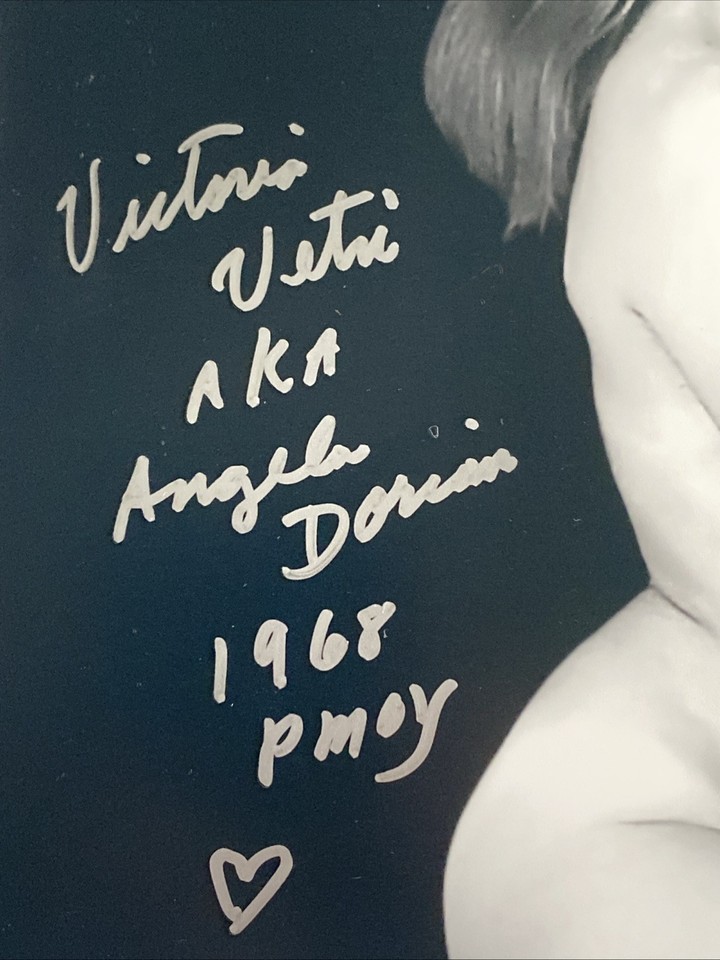 Victoria
Vetri
AKA
Angela
Dorian
1968
PMOY